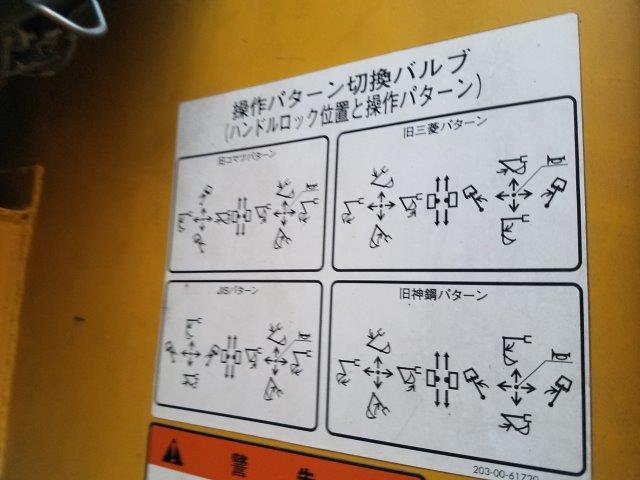 操作パターン切換バルブ
(ハンドルロック位置と操作パターン)
旧コマツパターン
旧三菱パターン
JISパターン
旧神鋼パターン
203-00-61720
警 告